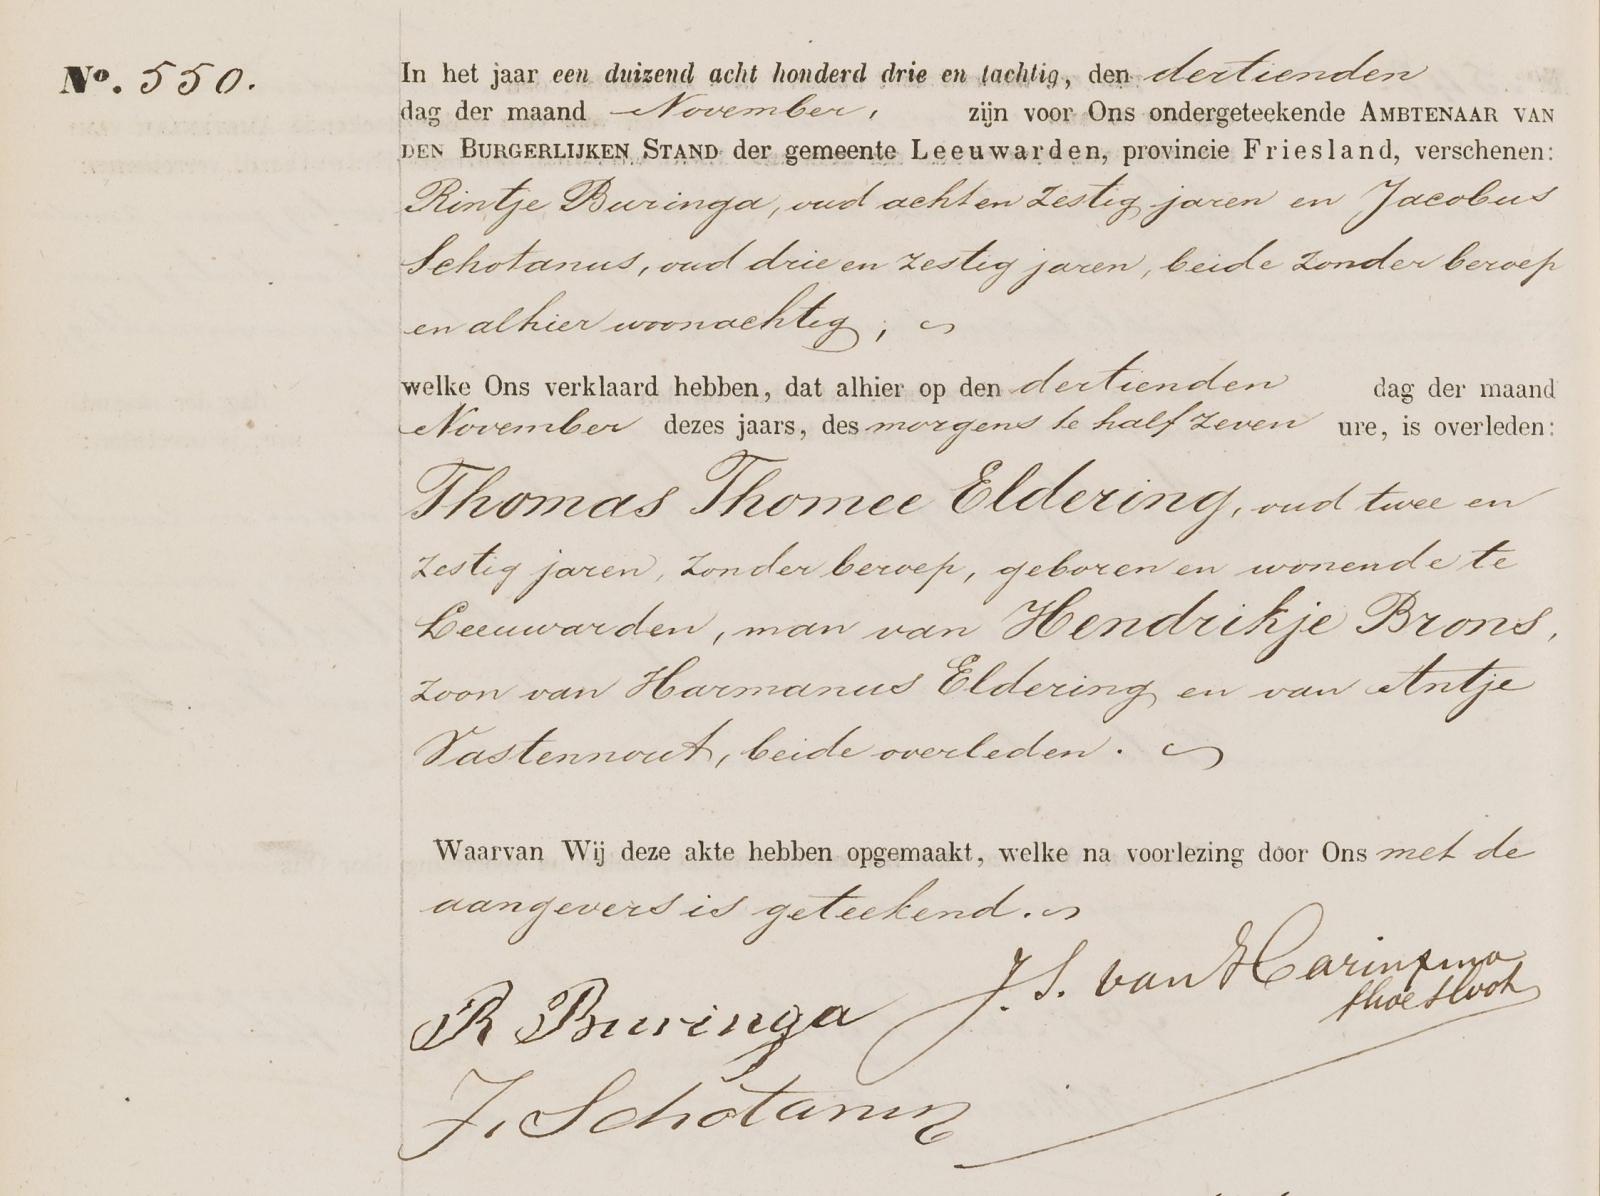 No. 550.
In het jaar een duizend acht honderd drie en tachtig, den dertienden
dag der maand November, zijn voor Ons ondergeteekende AMBTENAAR VAN
DEN BURGERLIJKEN STAND der gemeente Leeuwarden, provincie Friesland, verschenen:
Rintje Buringa, oud acht en zestig jaren en Jacobus
Schotanus, oud drie en zestig jaren, beide zonder beroep
en alhier woonachtig,
welke Ons verklaard hebben, dat alhier op den dertienden dag der maand
November dezes jaars, des morgens te half zeven ure, is overleden:
Thomas Thomee Eldering, oud twee en
zestig jaren, zonder beroep, geboren en wonende te
Leeuwarden, man van Hendrikje Brons,
zoon van Harmanus Eldering en van Antje
Vastennout, beide overleden.
Waarvan Wij deze akte hebben opgemaakt, welke na voorlezing door Ons met de
aangevers is geteekend.
J. S. van Harinxma
thoe Slooten
R Buringa
J. Schotanus